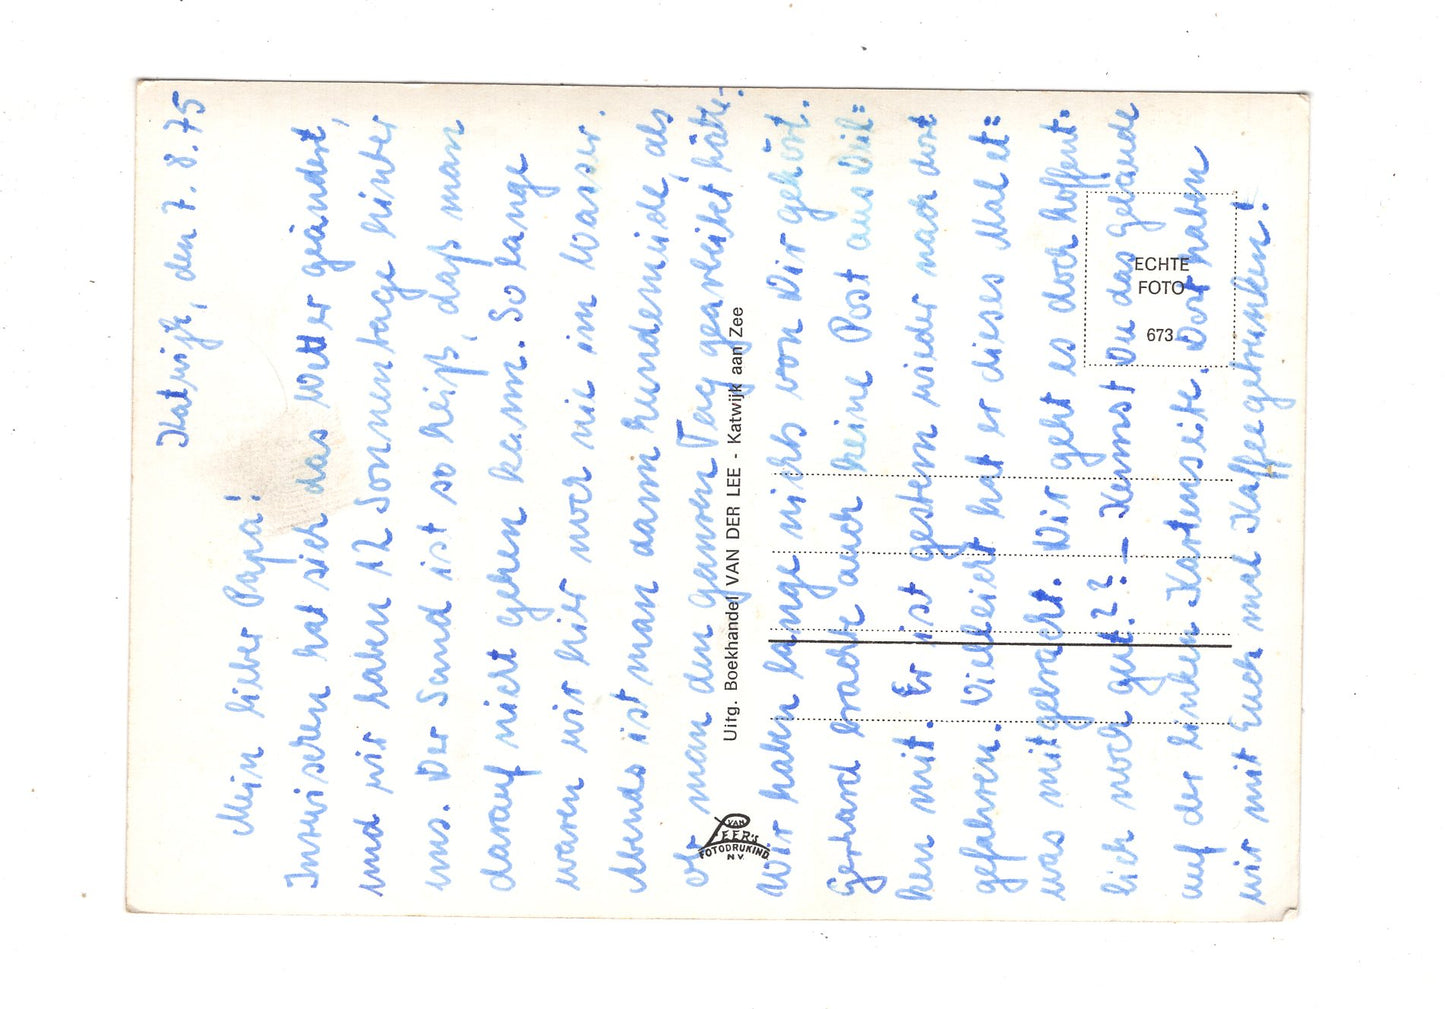 Katwijk, den 7. 8. 75
Mein lieber Papa!
Inzwischen hat sich das Wetter geändert,
und wir haben 12 Sonnentage hinter
uns. Der Sand ist so heiß, daß man
darauf nicht gehen kann. So lange
waren wir hier noch nie im Wasser.
Abends ist man dann hundemüde, als
ob man den ganzen Tag gearbeitet hätte.
Wir haben lange nichts von Dir gehört.
Gerhard brachte auch keine Post aus
ken mit. Er ist gestern wieder nach dort
gefahren. Vielleicht hat er dieses Mal et=
was mitgebracht. Dir geht es doch hoffent=
lich noch gut?? – Kennst Du das Gebäude
auf der linken Kartenseite. Dort haben
wir mit Euch mal Kaffee getrunken!
Uitg. Boekhandel VAN DER LEE - Katwijk aan Zee
VAN LEER'S
FOTODRUKIND.
N.V.
ECHTE
FOTO
673